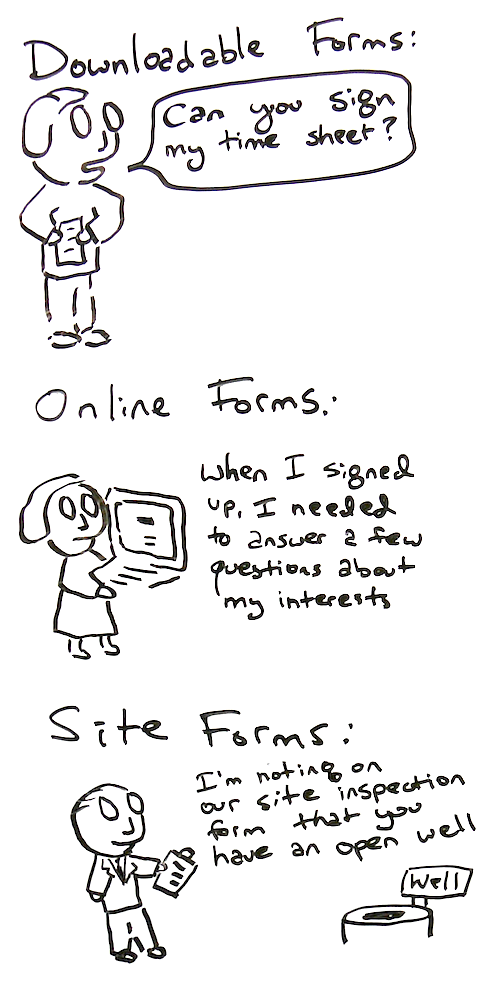 Downloadable Forms:
Can you sign
my time sheet?
Online Forms:
When I signed
up, I needed
to answer a few
questions about
my interests
Site Forms:
I'm noting on
our site inspection
form that you
have an open well
Well